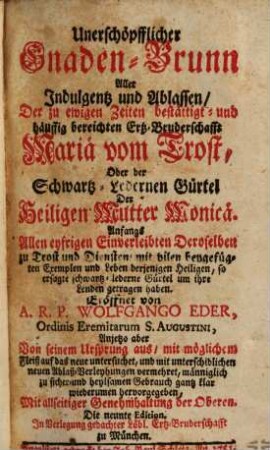 Unerschöpfflicher
Gnaden-Brunn
Aller
Indulgentz und Ablassen/
Der zu ewigen Zeiten bestättigt- und
häuffig bereichten Ertz-Bruderschafft
Mariä vom Trost,
Oder der
Schwartz-Ledernen Gürtel
Der
Heiligen Mutter Monicä.
Anfangs
Allen eyfrigen Einverleibten Deroselben
zu Trost und Diensten mit vilen beygefüg-
ten Exemplen und Leben derjenigen Heiligen, so
ersagte schwartz-lederne Gürtel um ihre
Lenden getragen haben.
Eröffnet von
A. R. P. WOLFGANGO EDER,
Ordinis Eremitarum S. AUGUSTINI,
Anjetzo aber
Von seinem Ursprung aus/ mit möglichem
Fleiß auf das neue untersuchet, und mit unterschidlichen
neuen Ablaß-Verleyhungen vermehret, männiglich
zu sicher- und heylsamen Gebrauch gantz klar
wiederumen hervorgegeben,
Mit allseitiger Genehmhaltung der Oberen.
Die neunte Edition.
In Verlegung gedachter Löbl. Ertz-Bruderschafft
zu München.